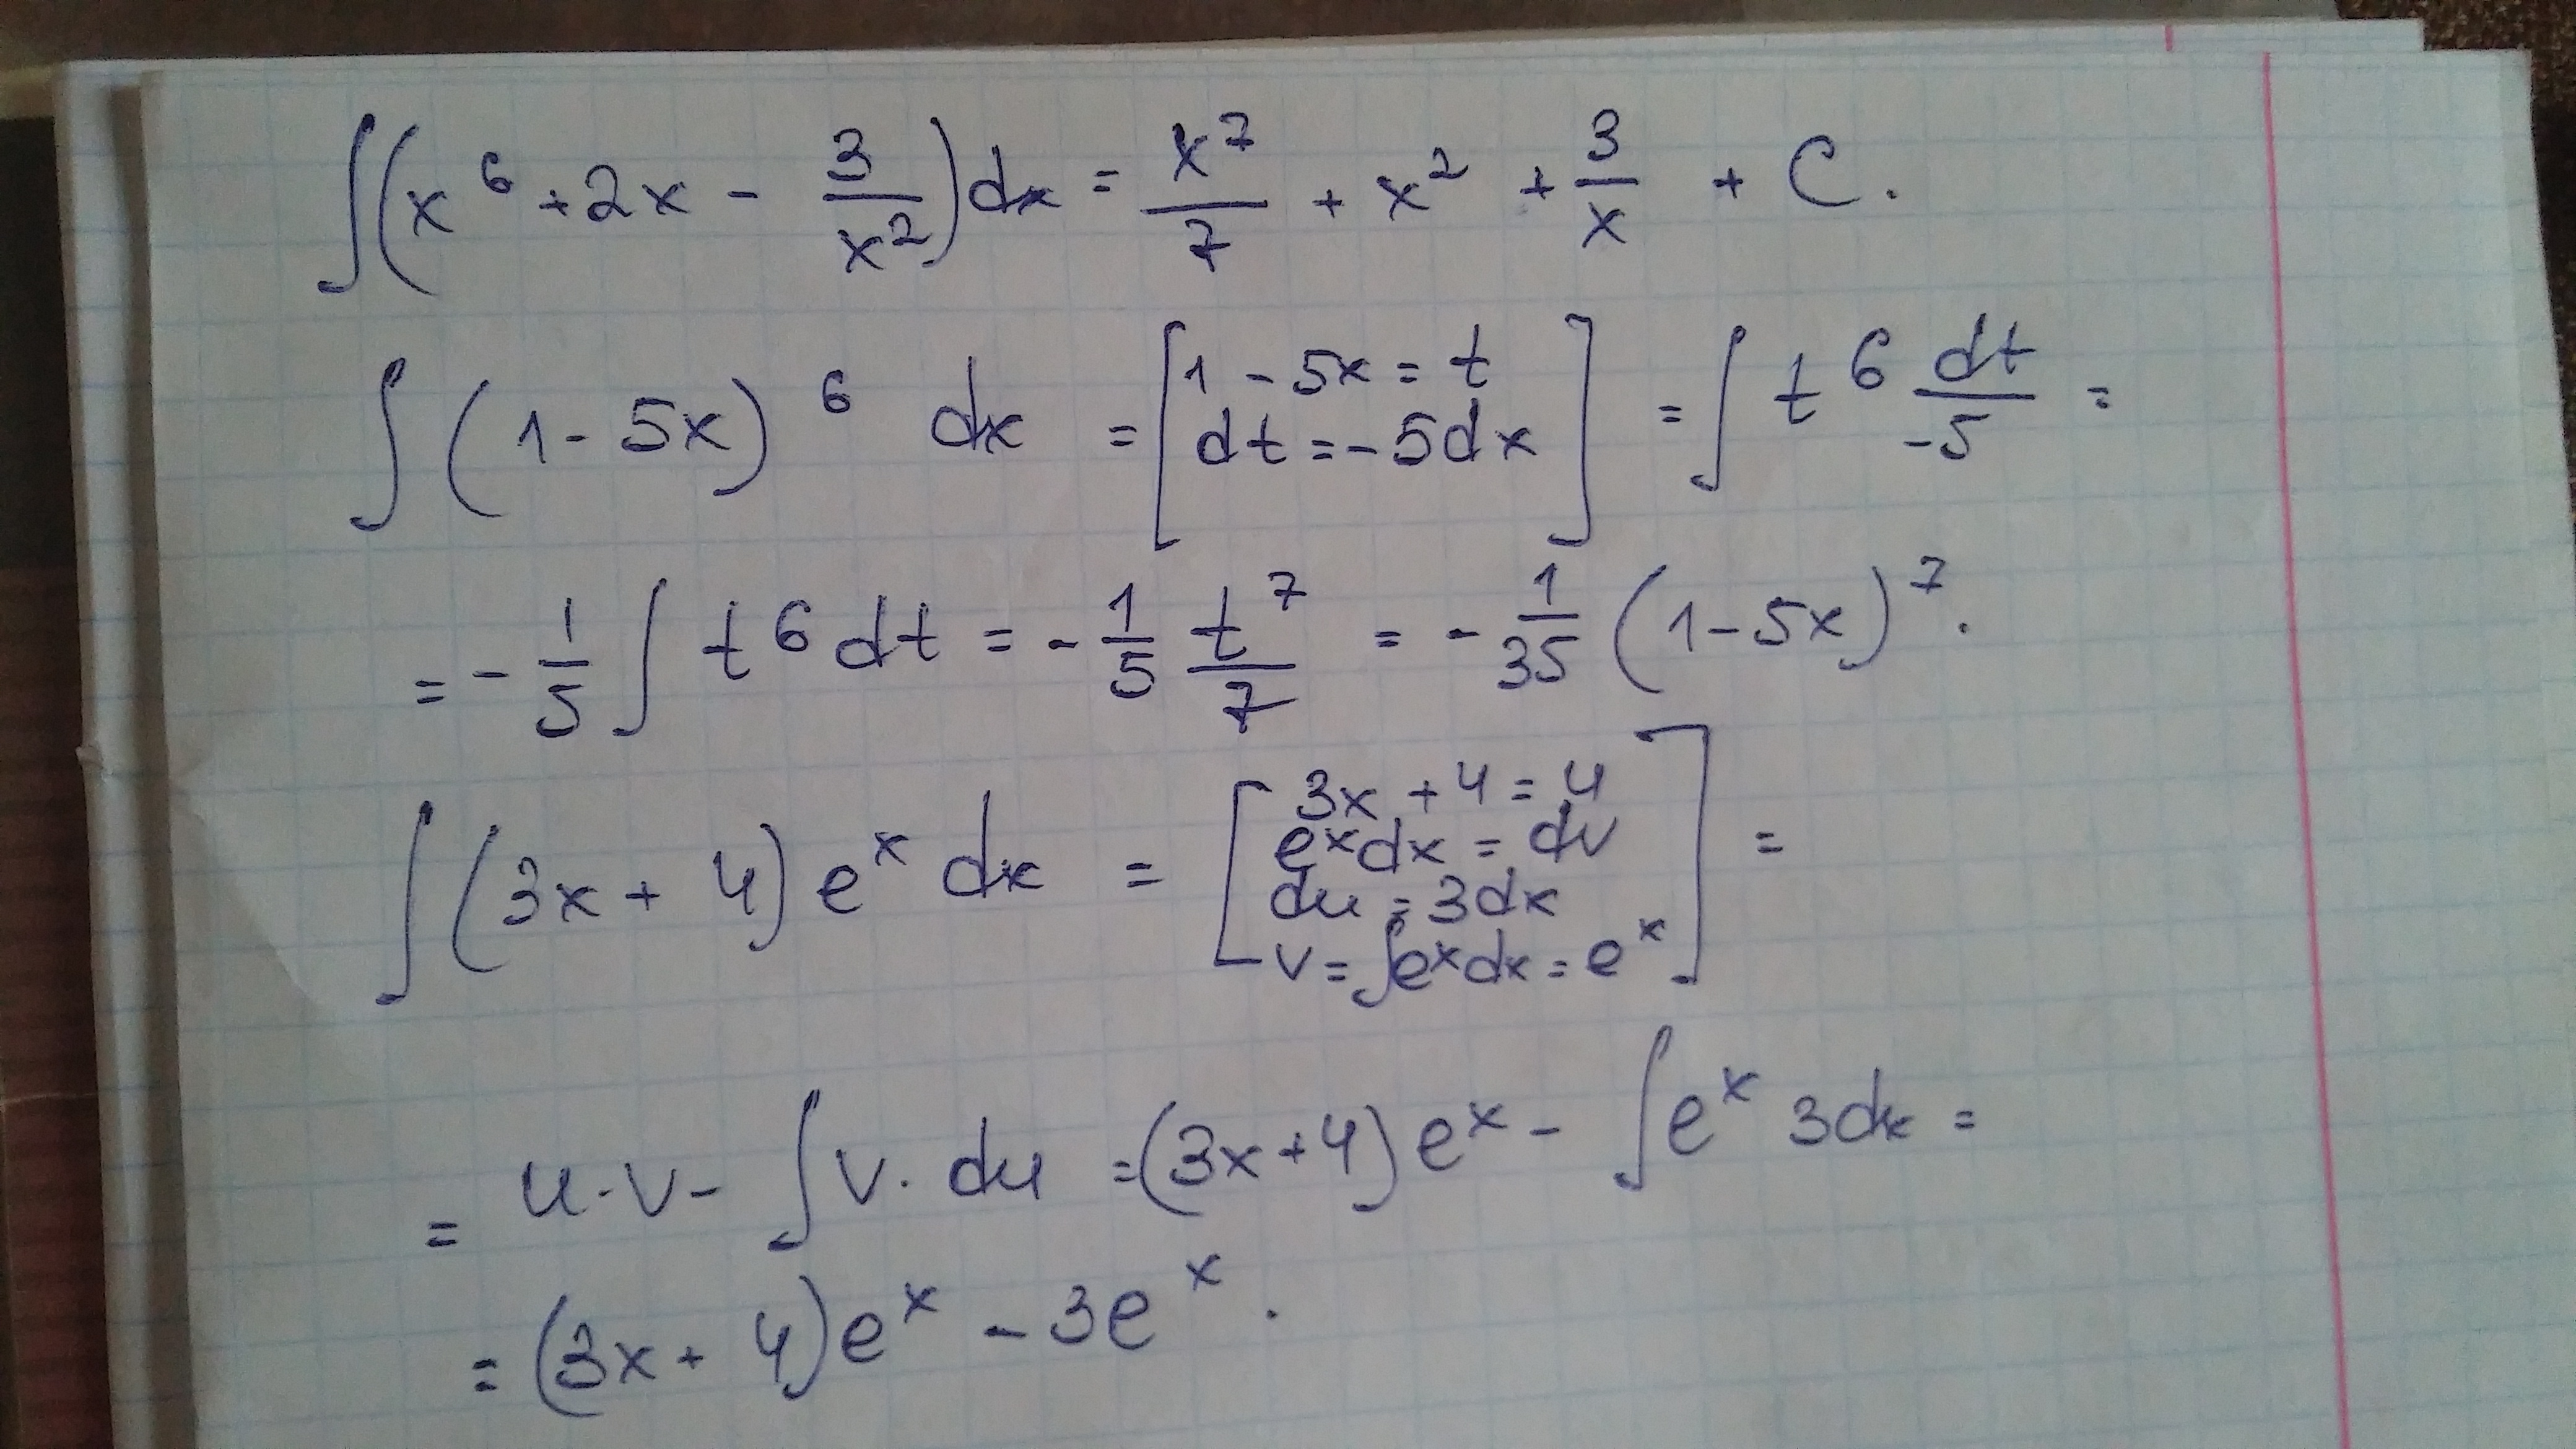 ∫(x⁶ + 2x - 3/x²)dx = x⁷/7 + x² + 3/x + C.
∫(1 - 5x)⁶ dx = [1 - 5x = t
dt = -5dx] = ∫ t⁶ dt/-5 =
= - 1/5 ∫ t⁶ dt = - 1/5 t⁷/7 = - 1/35 (1 - 5x)⁷.
∫(3x + 4)eˣ dx = [3x + 4 = u
eˣdx = dv
du = 3dx
v = ∫eˣdx = eˣ] =
= u·v - ∫v·du = (3x+4)eˣ - ∫eˣ 3dx =
= (3x + 4)eˣ - 3eˣ.